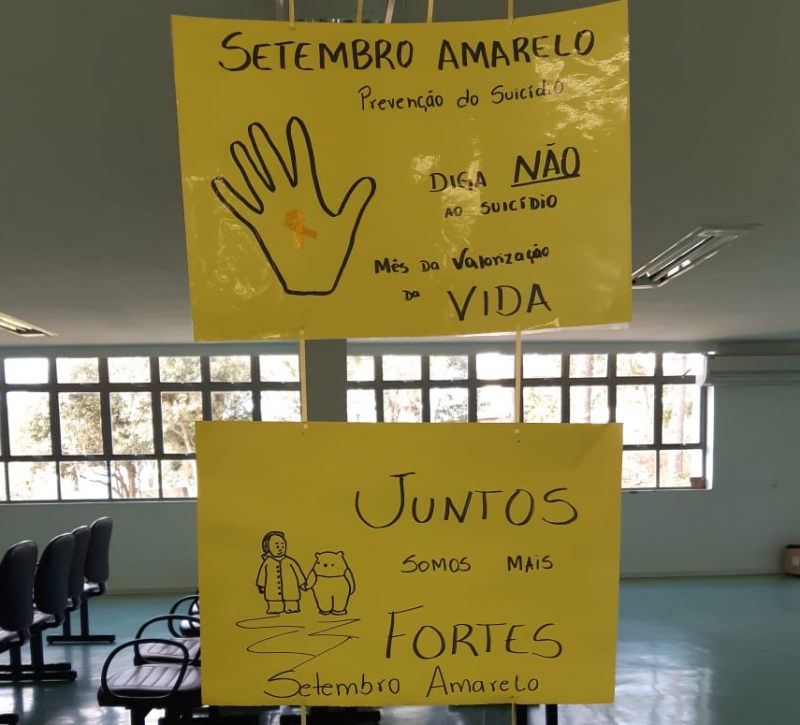 SETEMBRO AMARELO
Prevenção do Suicídio
DIGA NÃO
AO SUICÍDIO
Mês Da Valorização
Da VIDA
JUNTOS
SOMOS MAIS
FORTES
Setembro Amarelo